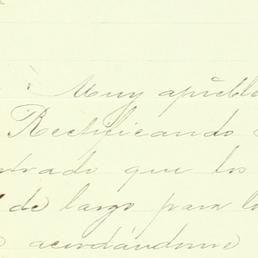 Muy
Rectificando
trado que los
de largo para l
acordándome